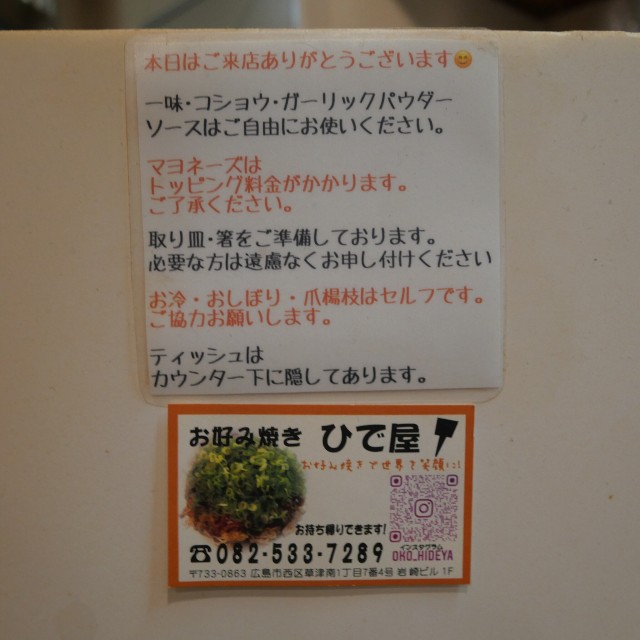 本日はご来店ありがとうございます😊
一味・コショウ・ガーリックパウダー
ソースはご自由にお使いください。
マヨネーズは
トッピング料金がかかります。
ご了承ください。
取り皿・箸をご準備しております。
必要な方は遠慮なくお申し付けください
お冷・おしぼり・爪楊枝はセルフです。
ご協力お願いします。
ティッシュは
カウンター下に隠してあります。
お好み焼き ひで屋
お好み焼きで世界を笑顔に!
お持ち帰りできます!
インスタグラム
☎082-533-7289 OKO_HIDEYA
〒733-0863 広島市西区草津南1丁目7番4号 岩崎ビル 1F